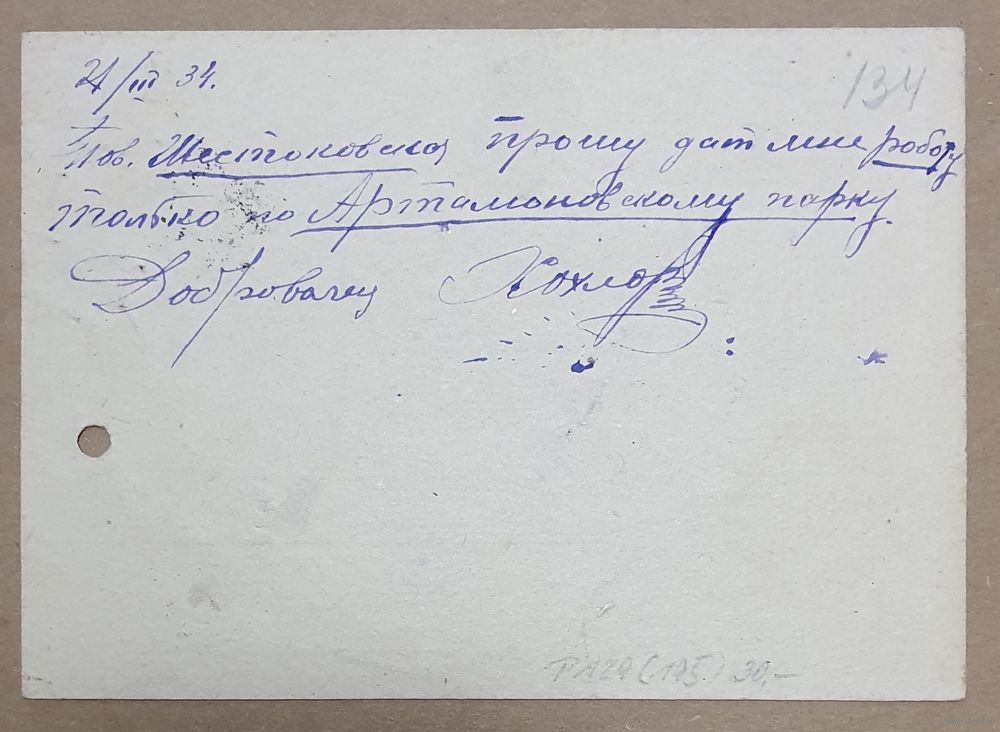 21/III 34.
134
Тов. Шестоковская прошу дат мне роботу
только по Артамоновскому парку.
Доброволец Хохлов
(175) 30,—